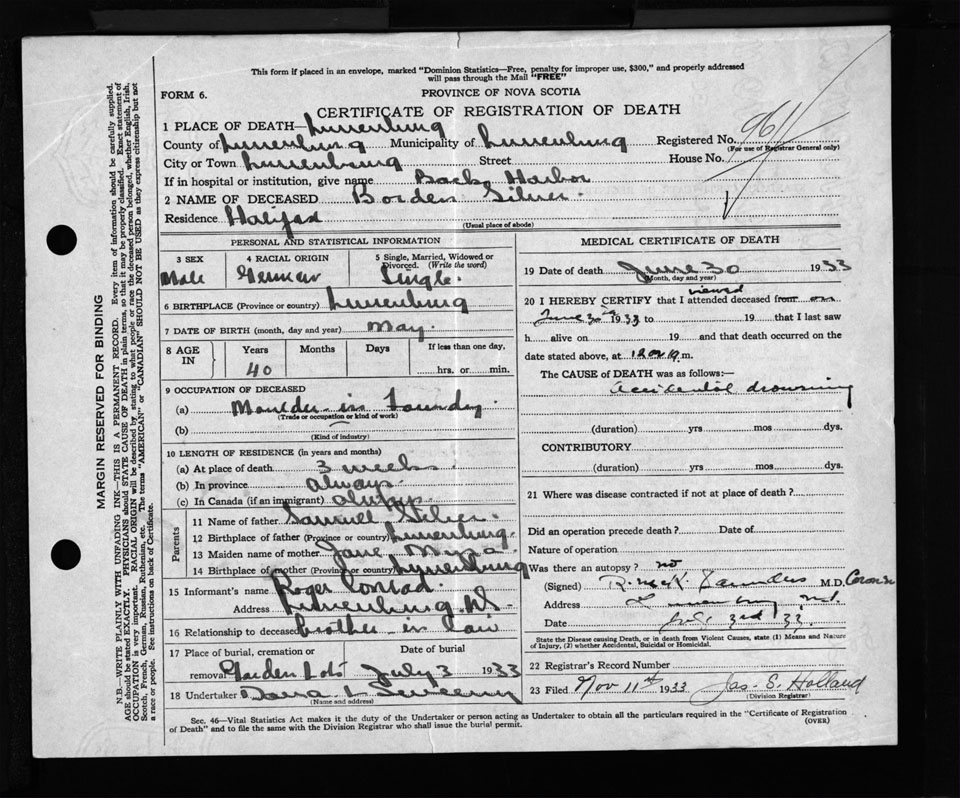 This form if placed in an envelope, marked "Dominion Statistics—Free, penalty for improper use, $300," and properly addressed
will pass through the Mail "FREE"
FORM 6.
PROVINCE OF NOVA SCOTIA
CERTIFICATE OF REGISTRATION OF DEATH
1 PLACE OF DEATH—Lunenburg
County of Lunenburg Municipality of Lunenburg Registered No.
(For use of Registrar General only)
City or Town Lunenburg Street House No.
If in hospital or institution, give name Back Harbor
2 NAME OF DECEASED Borden Silver.
Residence Halifax
(Usual place of abode)
PERSONAL AND STATISTICAL INFORMATION
3 SEX 4 RACIAL ORIGIN 5 Single, Married, Widowed or
Divorced. (Write the word)
Male German Single.
6 BIRTHPLACE (Province or country) Lunenburg
7 DATE OF BIRTH (month, day and year) May.
8 AGE IN Years Months Days If less than one day,
40 hrs. or min.
9 OCCUPATION OF DECEASED
(a) Moulder in Foundry.
(Trade or occupation or kind of work)
(b)
(Kind of industry)
10 LENGTH OF RESIDENCE (in years and months)
(a) At place of death 3 weeks.
(b) In province always.
(c) In Canada (if an immigrant) always.
Parents
11 Name of father Samuel Silver.
12 Birthplace of father (Province or country) Lunenburg.
13 Maiden name of mother Jane Myra
14 Birthplace of mother (Province or country) Lunenburg
15 Informant's name Roger Conrad.
Address Lunenburg. NS.
16 Relationship to deceased brother in law
17 Place of burial, cremation or Date of burial
removal Garden Lots July 3 1933
18 Undertaker L Sweeny
(Name and address)
MEDICAL CERTIFICATE OF DEATH
19 Date of death June 30 1933
(Month, day and year)
viewed
20 I HEREBY CERTIFY that I attended deceased from on
June 30th 1933 to 19 that I last saw
h alive on 19 and that death occurred on
the date stated above, at m.
The CAUSE of DEATH was as follows:—
accidental drowning
(duration) yrs mos dys.
CONTRIBUTORY
(duration) yrs mos dys.
21 Where was disease contracted if not at place of death?
Did an operation precede death? Date of
Nature of operation
Was there an autopsy? no
(Signed) R. McK. Saunders M.D. Coroner
Address Lunenburg N.S.
Date July 3rd 33.
State the Disease causing Death, or in death from Violent Causes, state (1) Means and Nature
of Injury, (2) whether Accidental, Suicidal or Homicidal.
22 Registrar's Record Number
23 Filed Nov 11th 1933 Jas. S. Holland
(Division Registrar)
Sec. 46—Vital Statistics Act makes it the duty of the Undertaker or person acting as Undertaker to obtain all the particulars required in the "Certificate of Registration
of Death" and to file the same with the Division Registrar who shall issue the burial permit.
(OVER)
MARGIN RESERVED FOR BINDING
N.B.—WRITE PLAINLY WITH UNFADING INK—THIS IS A PERMANENT RECORD. Every item of information should be carefully supplied.
AGE should be stated EXACTLY. PHYSICIANS should STATE CAUSE OF DEATH in plain terms, so that it may be properly classified. Exact statement of
OCCUPATION is very important. RACIAL ORIGIN will be described by stating to what people or race the deceased person belonged, whether English, Irish,
Scotch, French, German, Russian, Ruthenian, etc. The terms "AMERICAN" or "CANADIAN" SHOULD NOT BE USED as they express citizenship but not
a race or people. See instructions on back of Certificate.